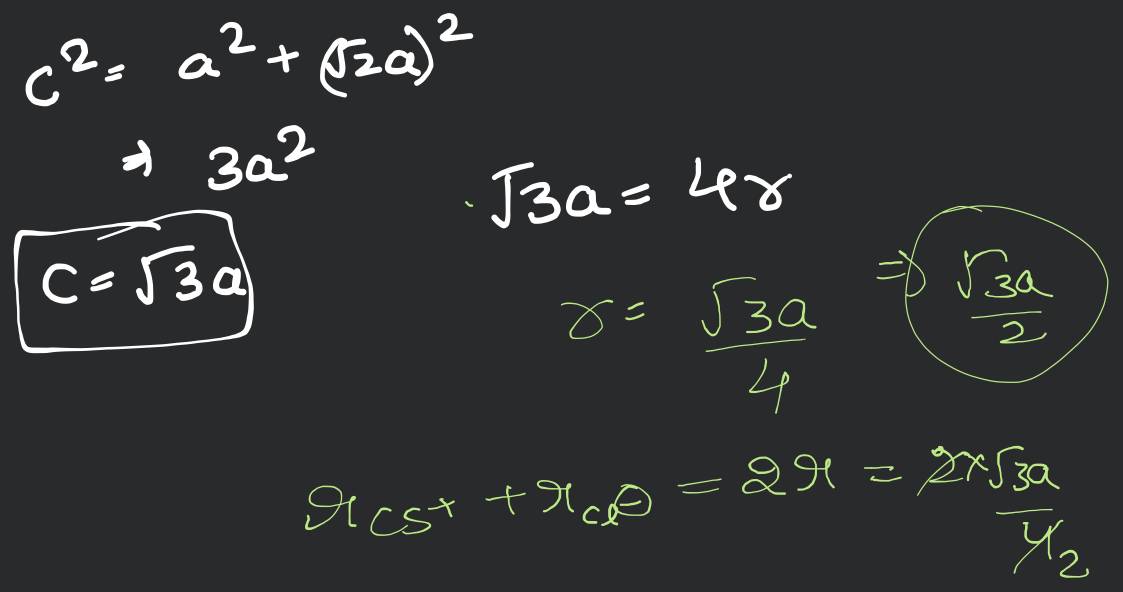 c² = a² + (√2a)²
⇒ 3a²
C = √3a
√3a = 4r
r = √3a / 4
⇒ √3a / 2
r Cs⁺ + r Cl⊖ = 2r = 2×√3a / 4 2